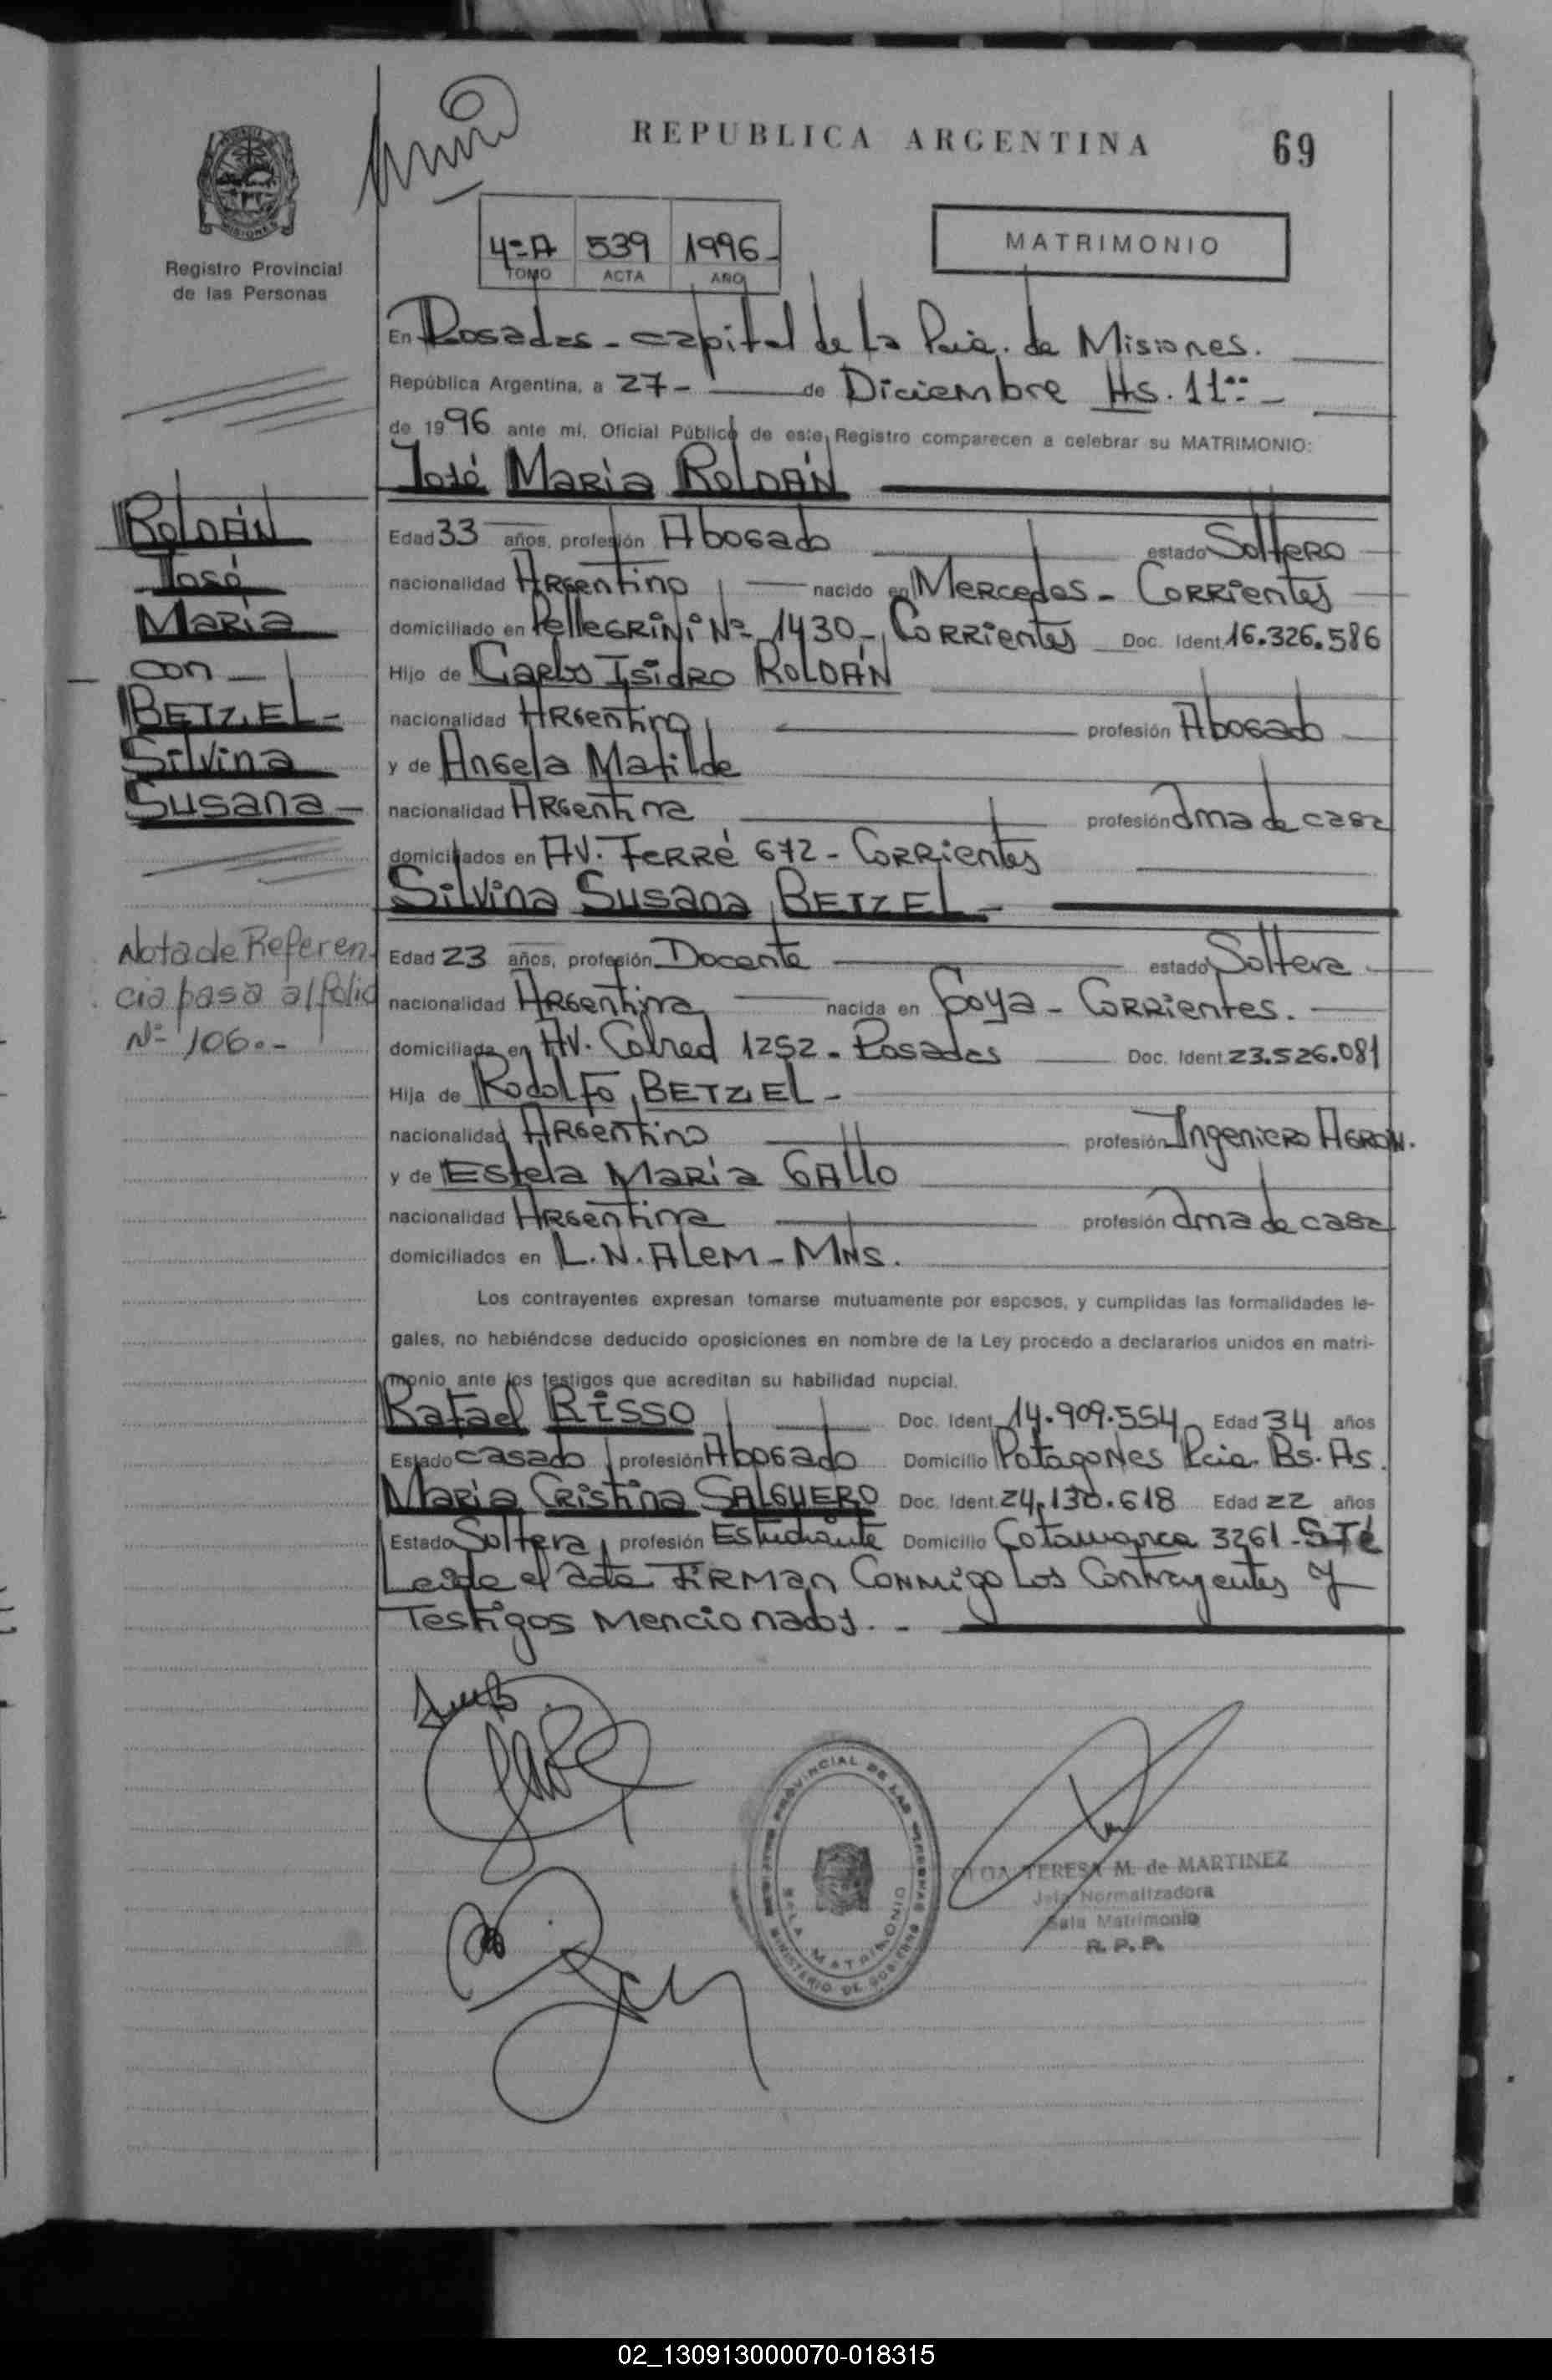 REPUBLICA ARGENTINA
69
MISIONES
Registro Provincial
de las Personas
4º A 539 1996-
TOMO ACTA AÑO
MATRIMONIO
En Posadas - capital de la Pcia. de Misiones.
República Argentina, a 27- de Diciembre Hs. 11:-
de 1996 ante mí, Oficial Público de este Registro comparecen a celebrar su MATRIMONIO:
José María ROLDÁN
ROLDÁN
José
María
con
BETZEL-
Silvina
Susana-
Edad 33 años, profesión Abogado estado Soltero
nacionalidad Argentino nacido en Mercedes - Corrientes
domiciliado en Pellegrini Nº 1430 - Corrientes Doc. Ident. 16.326.586
Hijo de Carlos Isidro ROLDÁN
nacionalidad Argentino profesión Abogado
y de Angela Matilde
nacionalidad Argentina profesión Ama de casa
domiciliados en AV. Ferré 672 - Corrientes
Silvina Susana BETZEL-
Nota de Referen
cia pasa al folio
Nº 106.-
Edad 23 años, profesión Docente estado Soltera
nacionalidad Argentina nacida en Goya - Corrientes.
domiciliada en AV. Cabred 1252 - Posadas Doc. Ident. 23.526.081
Hija de Rodolfo BETZEL-
nacionalidad Argentino profesión Ingeniero Agron.
y de Estela María GALLO
nacionalidad Argentina profesión Ama de casa
domiciliados en L.N. Alem - Mns.
Los contrayentes expresan tomarse mutuamente por esposos, y cumplidas las formalidades le-
gales, no habiéndose deducido oposiciones en nombre de la Ley procedo a declararlos unidos en matri-
monio ante los testigos que acreditan su habilidad nupcial.
Rafael RISSO Doc. Ident. 14.909.554 Edad 34 años
Estado casado profesión Abogado Domicilio Patagones Pcia. Bs. As.
María Cristina SALGUERO Doc. Ident. 24.130.618 Edad 22 años
Estado Soltera profesión Estudiante Domicilio Catamarca 3261 - S Fé
Leída el acta firman conmigo los contrayentes y
testigos mencionados.-
REGISTRO PROVINCIAL DE LAS PERSONAS
SALA MATRIMONIO
MINISTERIO DE GOBIERNO
OLGA TERESA M. de MARTINEZ
Jefa Normalizadora
Sala Matrimonio
R. P. P.
02_130913000070-018315